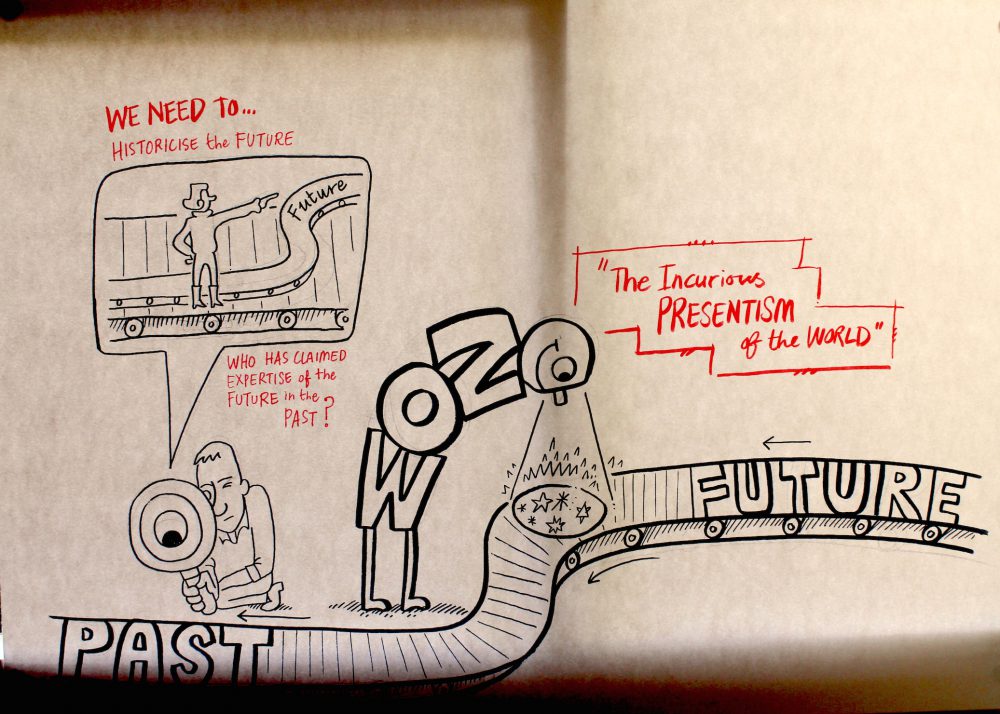 WE NEED TO...
HISTORICISE the FUTURE
Future
WHO HAS CLAIMED
EXPERTISE of the
FUTURE in the
PAST?
"The Incurious
PRESENTISM
of the WORLD"
NOW
FUTURE
PAST